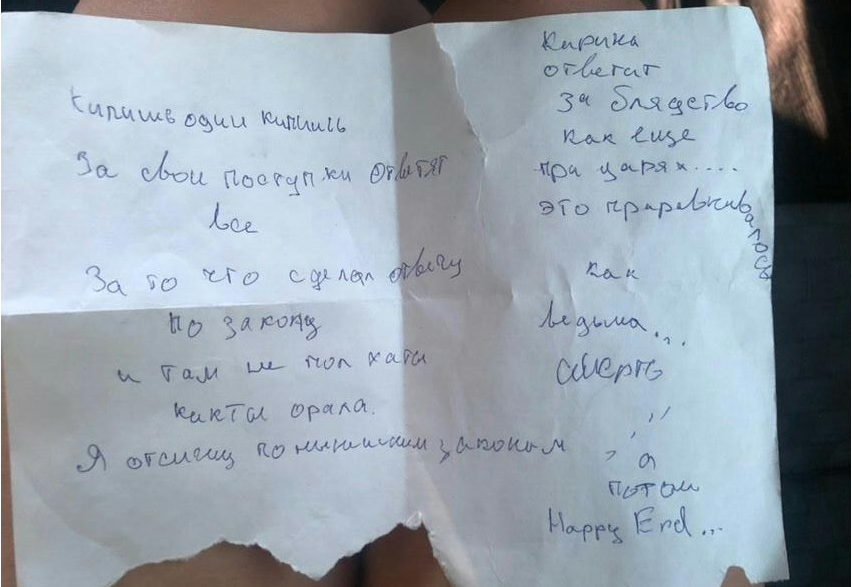 один
За свои поступки ответят
все
За то что сделал отвечу
по закону
и там не пол хаты
как ты орала.
Я отсижу по нынешним законам
Карина
ответит
за блядство
как еще
при царях....
это приравнивалось
как
ведьма...
смерть
а
потом
Happy End...